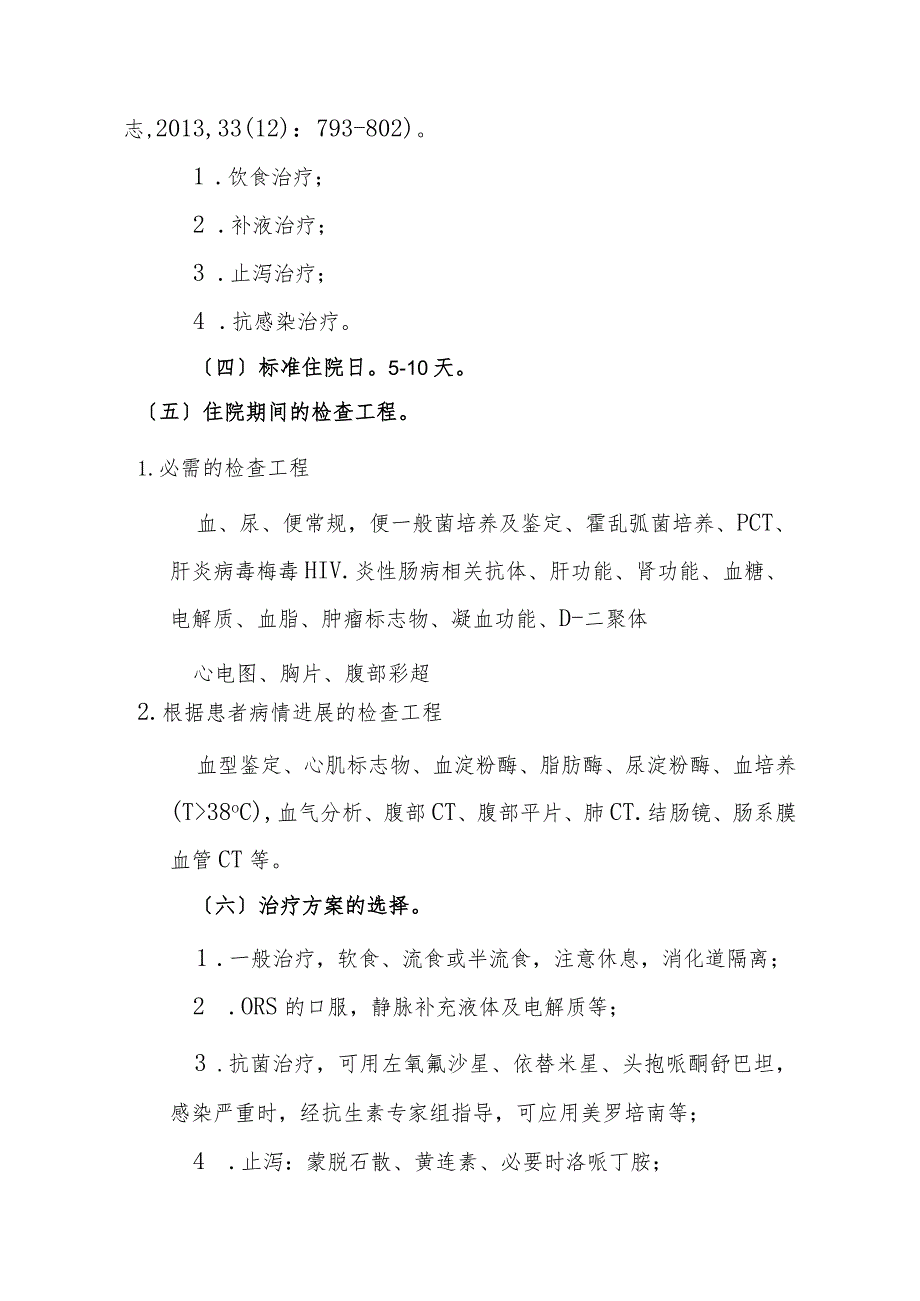 志,2013,33(12)：793-802)。
1 .饮食治疗；
2 .补液治疗；
3 .止泻治疗；
4 .抗感染治疗。
〔四〕标准住院日。5-10天。
〔五〕住院期间的检查工程。
1.必需的检查工程
血、尿、便常规，便一般菌培养及鉴定、霍乱弧菌培养、PCT、
肝炎病毒梅毒HIV.炎性肠病相关抗体、肝功能、肾功能、血糖、
电解质、血脂、肿瘤标志物、凝血功能、D-二聚体
心电图、胸片、腹部彩超
2.根据患者病情进展的检查工程
血型鉴定、心肌标志物、血淀粉酶、脂肪酶、尿淀粉酶、血培养
(T>38ºC),血气分析、腹部CT、腹部平片、肺CT.结肠镜、肠系膜
血管CT等。
〔六〕治疗方案的选择。
1 .一般治疗，软食、流食或半流食，注意休息，消化道隔离；
2 .ORS的口服，静脉补充液体及电解质等；
3 .抗菌治疗，可用左氧氟沙星、依替米星、头抱哌酮舒巴坦，
感染严重时，经抗生素专家组指导，可应用美罗培南等；
4 .止泻：蒙脱石散、黄连素、必要时洛哌丁胺；